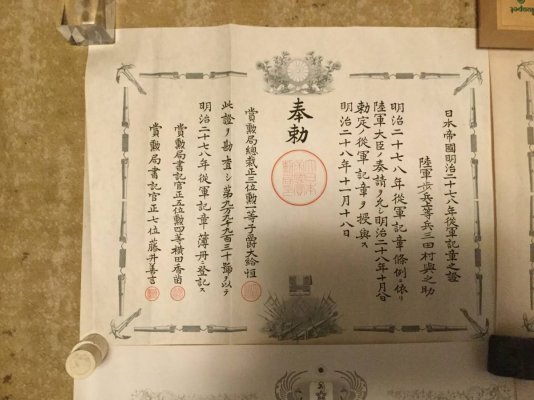 日本帝國明治二十七八年從軍記章之證
陸軍歩兵等兵三田村與之助
明治二十七八年從軍記章條例ニ依リ
陸軍大臣ノ奏請ヲ允シ明治二十八年十月九日
勅定ノ從軍記章ヲ授與ス
明治二十八年十一月十八日
奉勅
賞勲局總裁正三位勲一等子爵大給恒
此證ヲ勘査シ第九万九千九百三十號ヲ以テ
明治二十七八年從軍記章簿冊ニ登記ス
賞勲局書記官正五位勲四等横田香苗
賞勲局書記官正七位藤井善言